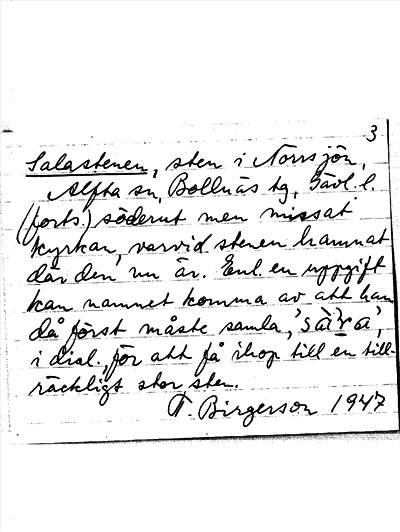 3
Salastenen, sten i Norrsjön,
Alfta sn, Bollnäs tg, Gävl. l.
(forts.) söderut men missat
kyrkan, varvid stenen hamnat
där den nu är. Enl. en uppgift
kan namnet komma av att han
då först måste samla, 'sàra',
i dial., för att få ihop till en till-
räckligt stor sten.
T. Birgerson 1947